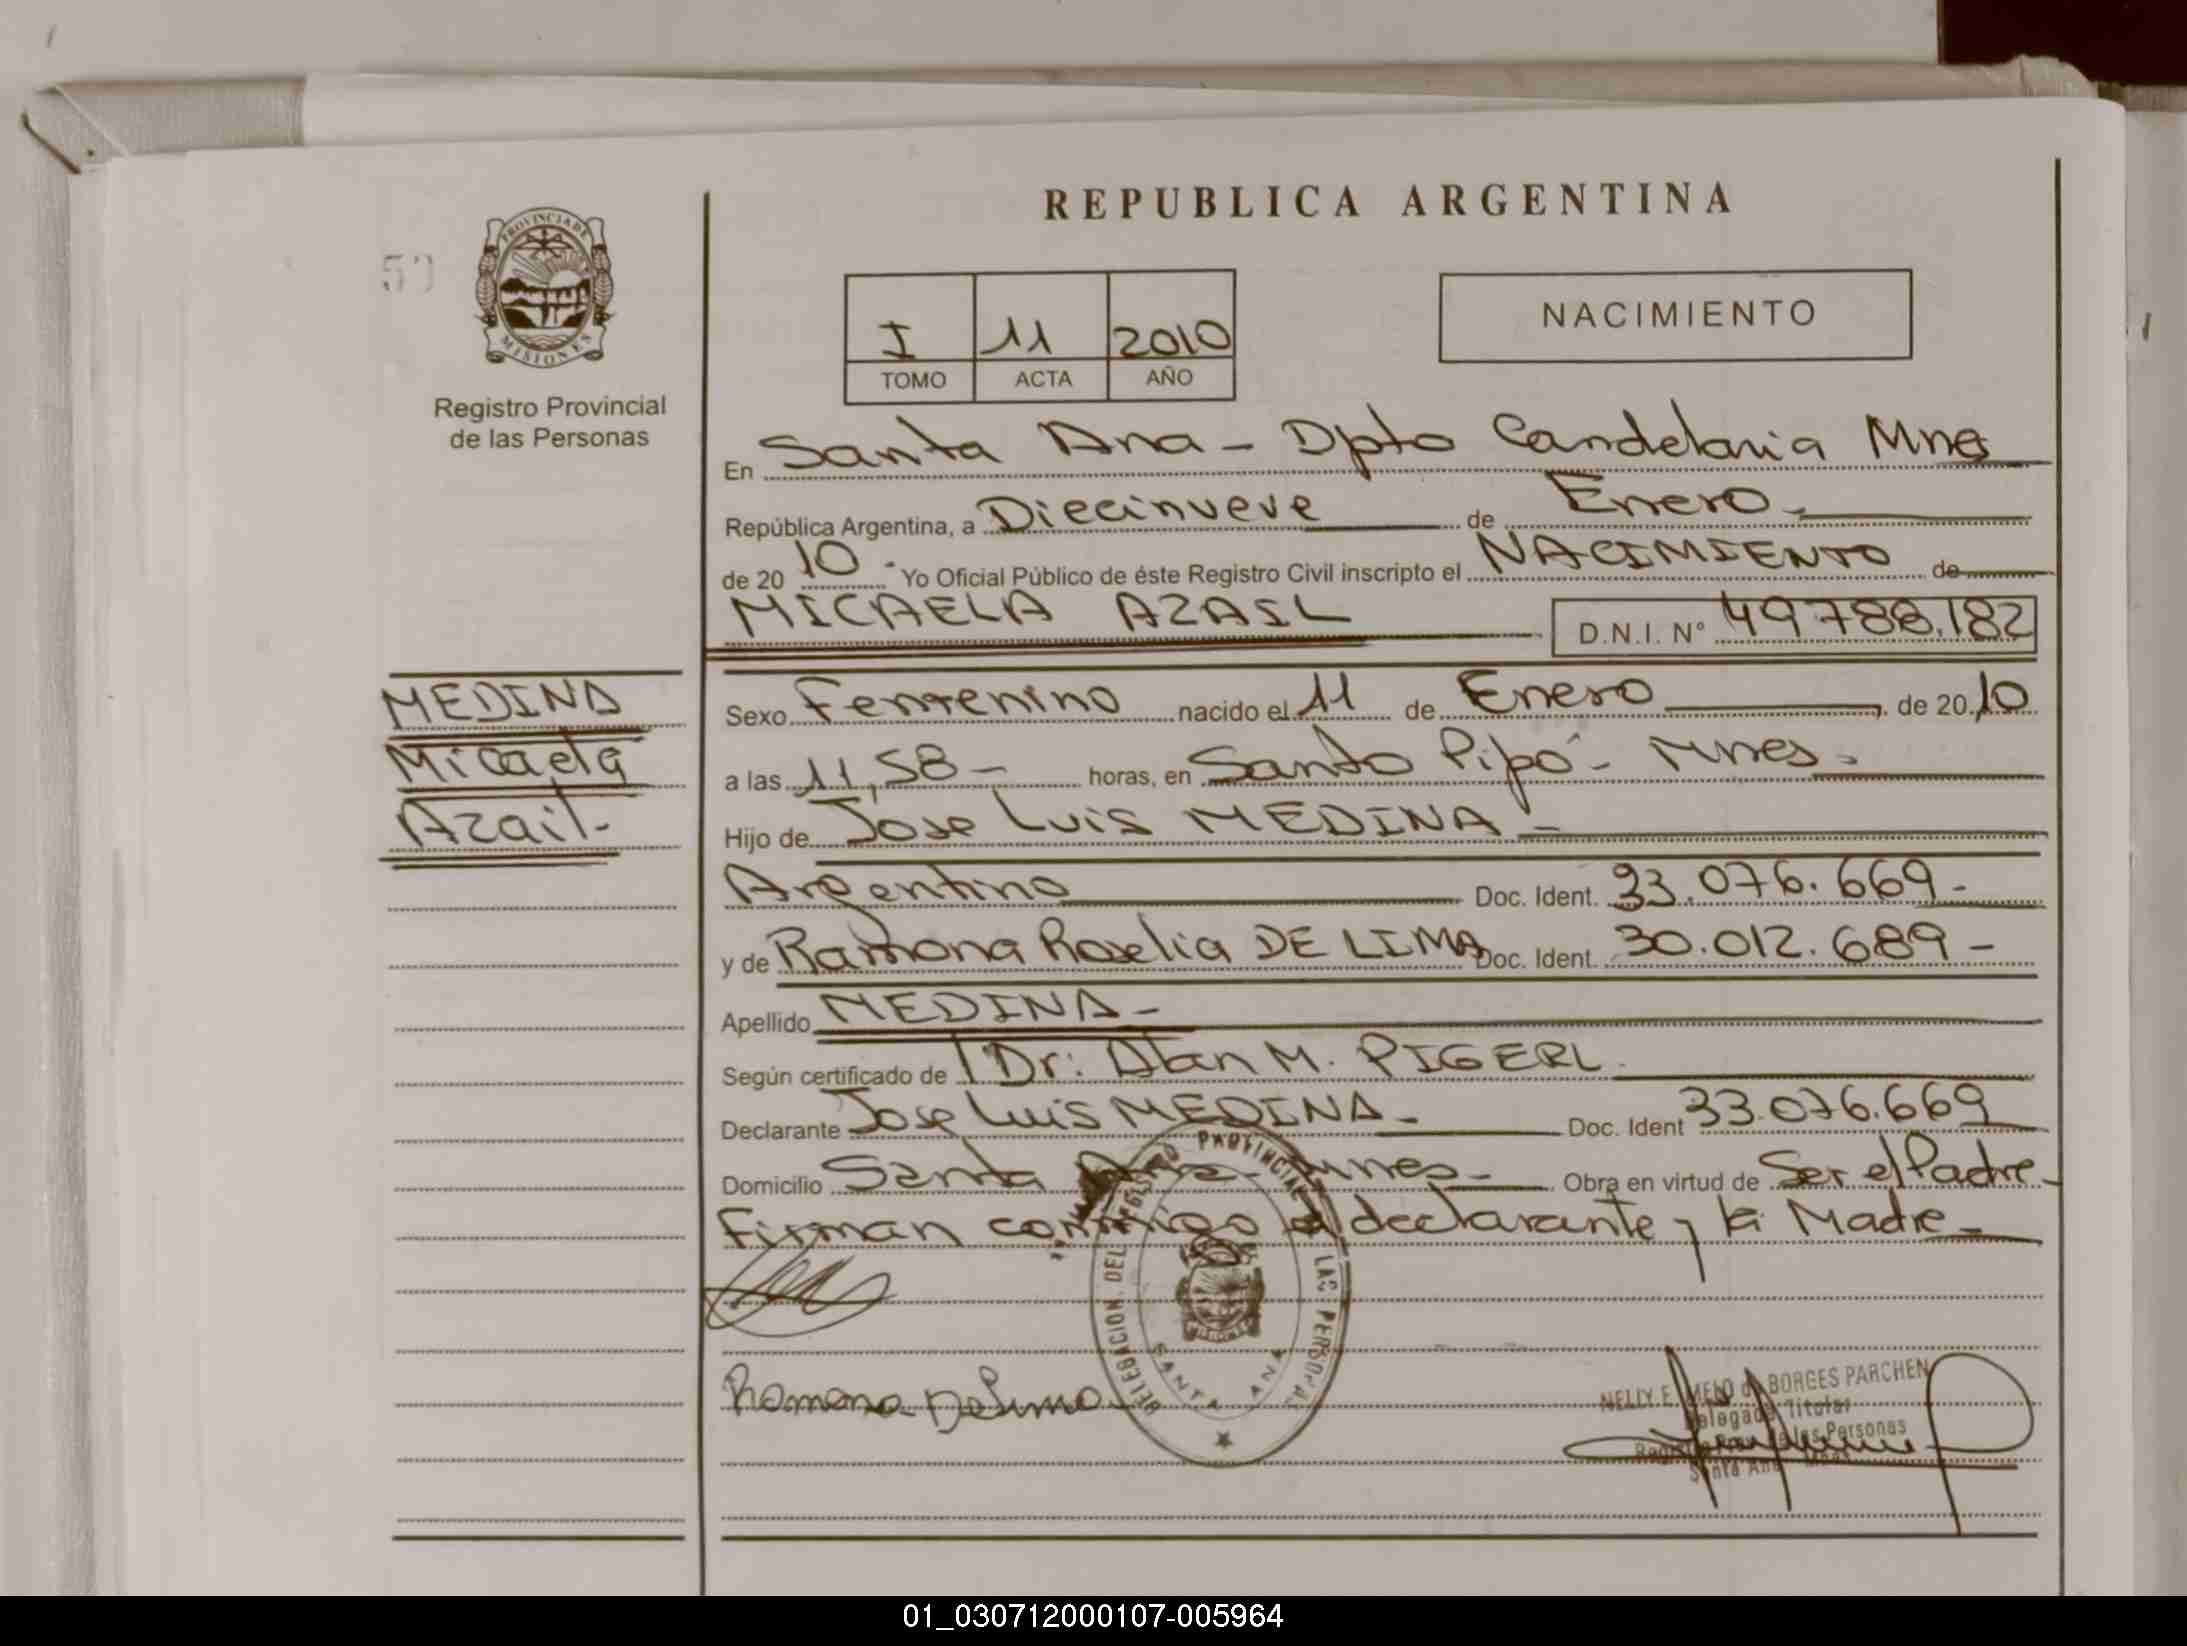 REPUBLICA ARGENTINA
PROVINCIA DE
MISIONES
Registro Provincial
de las Personas
I 11 2010
TOMO ACTA AÑO
NACIMIENTO
En Santa Ana - Dpto Candelaria Mnes
República Argentina, a Diecinueve de Enero.
de 20 10. Yo Oficial Público de éste Registro Civil inscripto el NACIMIENTO de
MICAELA AZAIL D.N.I. N° 49.788.182
MEDINA
Micaela
Azail.-
Sexo Femenino nacido el 11 de Enero, de 20 10
a las 11,58- horas, en Santo Pipó - Mnes.
Hijo de Jose Luis MEDINA -
Argentino Doc. Ident. 33.076.669-
y de Ramona Roselia DE LIMA Doc. Ident. 30.012.689-
Apellido MEDINA -
Según certificado de Dr: Alan M. PIGERL.
Declarante Jose Luis MEDINA - Doc. Ident 33.076.669
Domicilio Santa Ana - Mnes - Obra en virtud de Ser el Padre -
Firman conmigo el declarante y la Madre -
DELEGACION DEL REGISTRO PROVINCIAL LAS PERSONAS
MISIONES
SANTA ANA
Ramona De Lima
NELLY E. MELO de BORGES PARCHEN
Delegada Titular
Registro Prov. de las Personas
Santa Ana Mnes
01_030712000107-005964